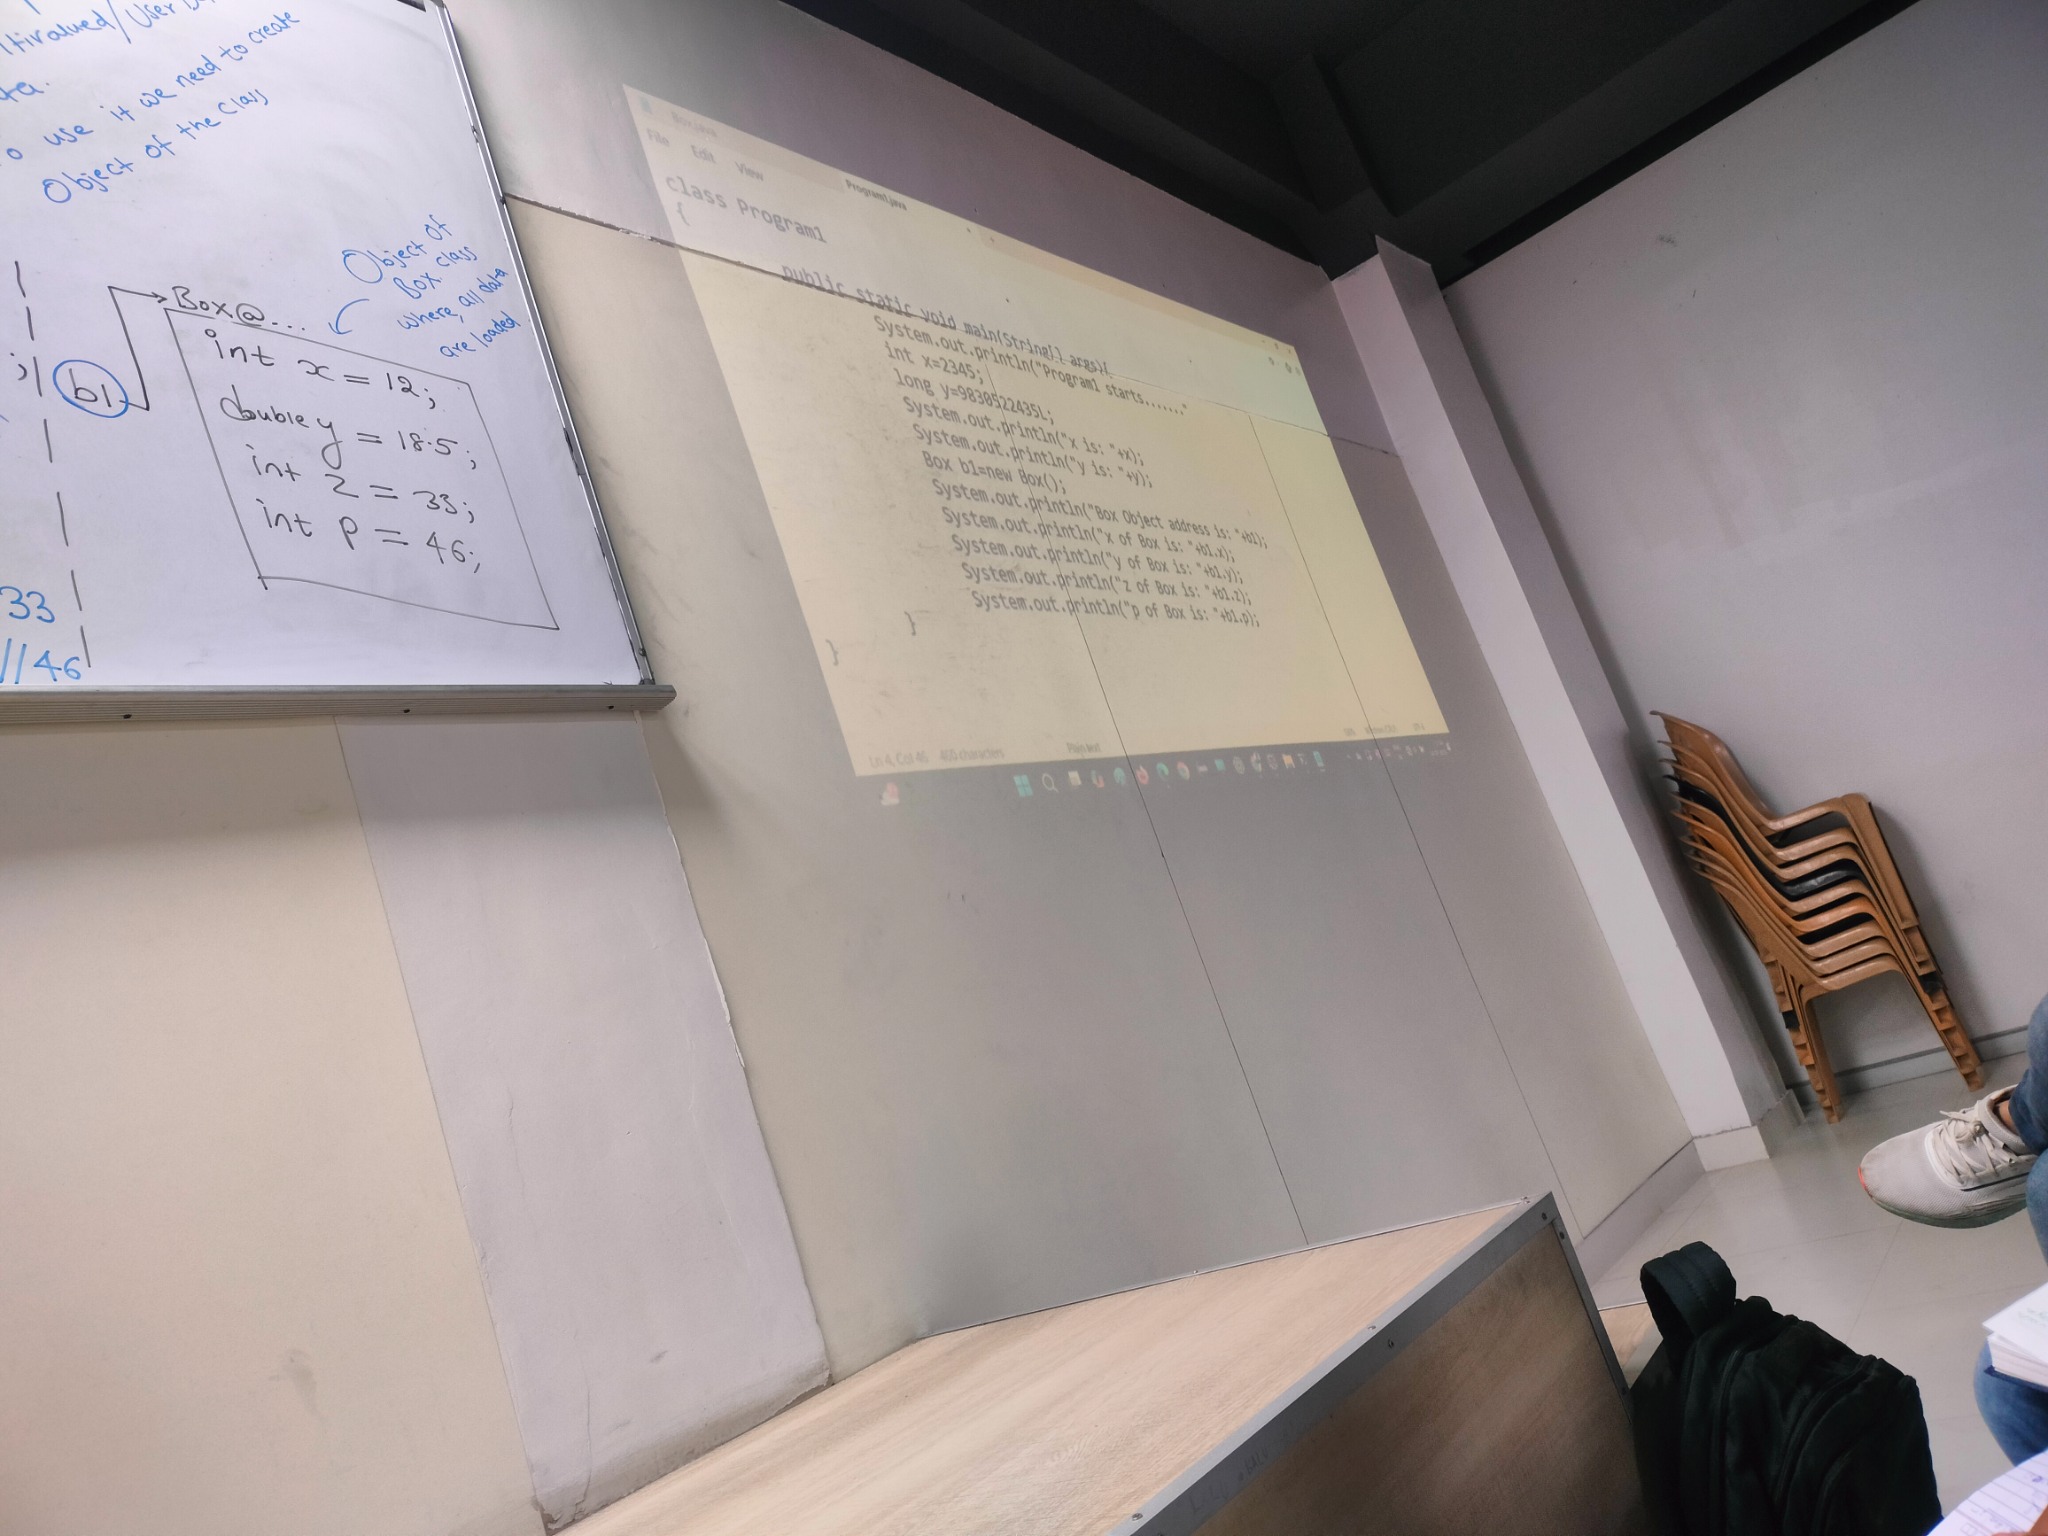 use it we need to create
Object of the class
Object of
Box class
where, all data
are loaded
Box@...
b1
int x = 12;
double y = 18.5;
int z = 33;
int p = 46;
33
//46
Box.java
Program1.java
File Edit View
class Program1
{
public static void main(String[] args){
System.out.println("Program1 starts......."
int x=2345;
long y=9830522435L;
System.out.println("x is: "+x);
System.out.println("y is: "+y);
Box b1=new Box();
System.out.println("Box Object address is: "+b1);
System.out.println("x of Box is: "+b1.x);
System.out.println("y of Box is: "+b1.y);
System.out.println("z of Box is: "+b1.z);
System.out.println("p of Box is: "+b1.p);
}
}
Ln 4, Col 46 460 characters Plain text